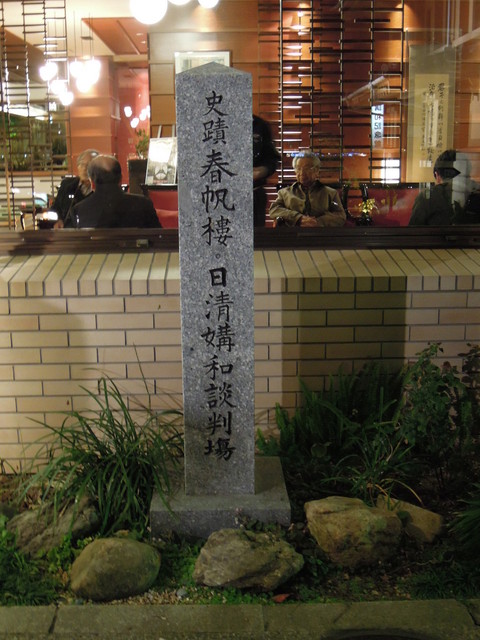 史蹟春帆樓。日清媾和談判場